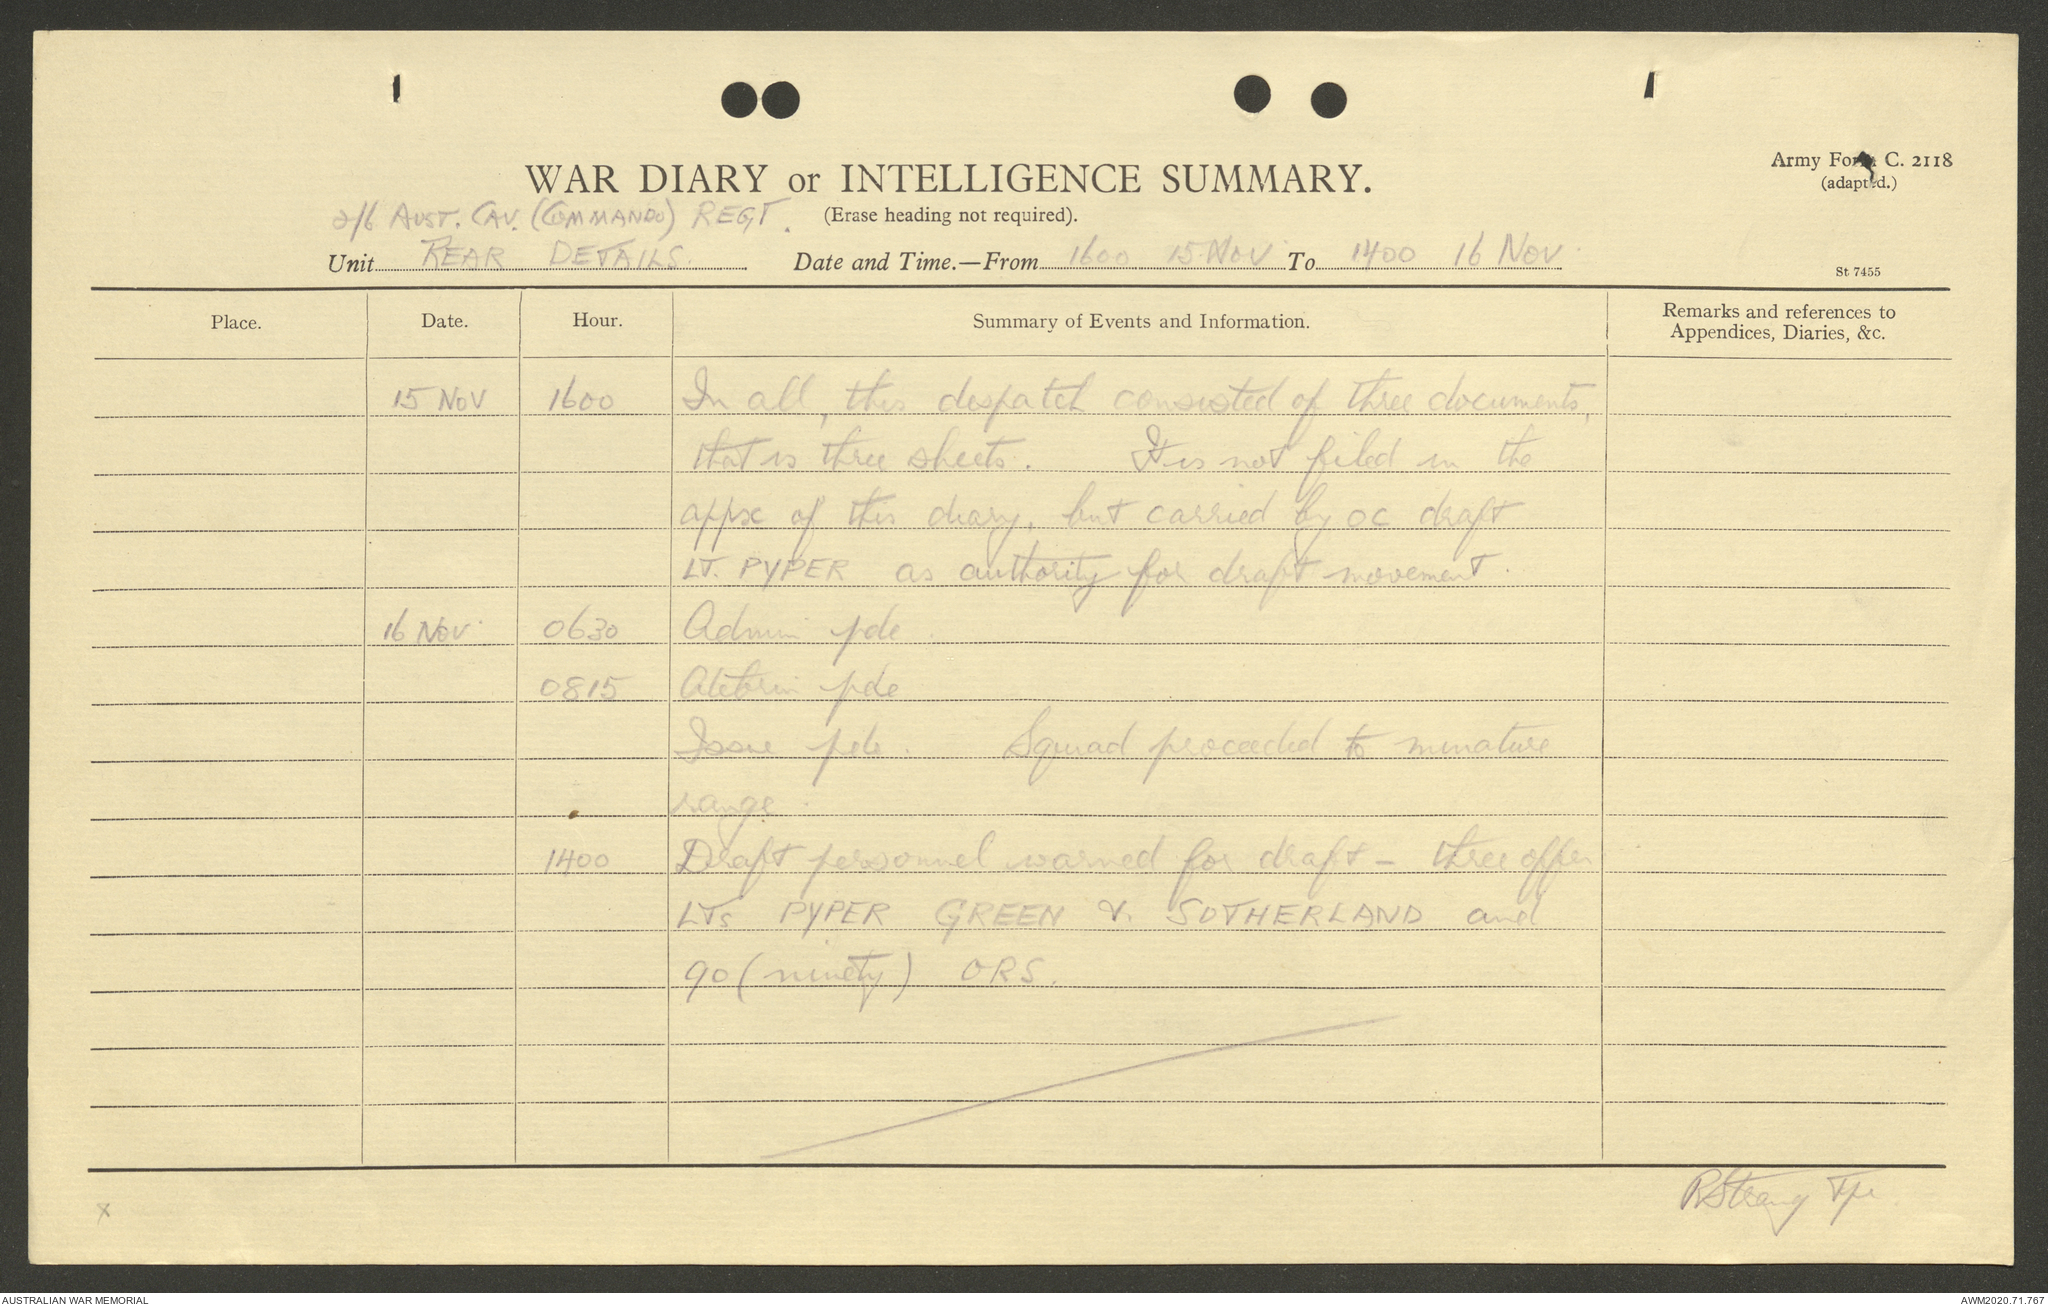 Army Form C. 2118
(adapted.)
WAR DIARY or INTELLIGENCE SUMMARY.
2/6 AUST. CAV. (COMMANDO) REGT.
(Erase heading not required).
Unit REAR DETAILS. Date and Time.—From 1600 15 NOV To 1400 16 NOV.
St 7455
Place. Date. Hour. Summary of Events and Information. Remarks and references to
Appendices, Diaries, &c.
15 NOV 1600 In all, this despatch consisted of three documents,
that is three sheets. It is not filed in the
appx of this diary, but carried by OC draft
LT. PYPER as authority for draft movement.
16 NOV. 0630 Admin pde.
0815 Atebrin pde
Issue pde. Squad proceeded to minature
range.
1400 Draft personnel warned for draft - three offrs
LTs PYPER GREEN & SUTHERLAND and
90 (ninety) ORS.
RStrang Tpr.
x
AUSTRALIAN WAR MEMORIAL
AWM2020.71.767